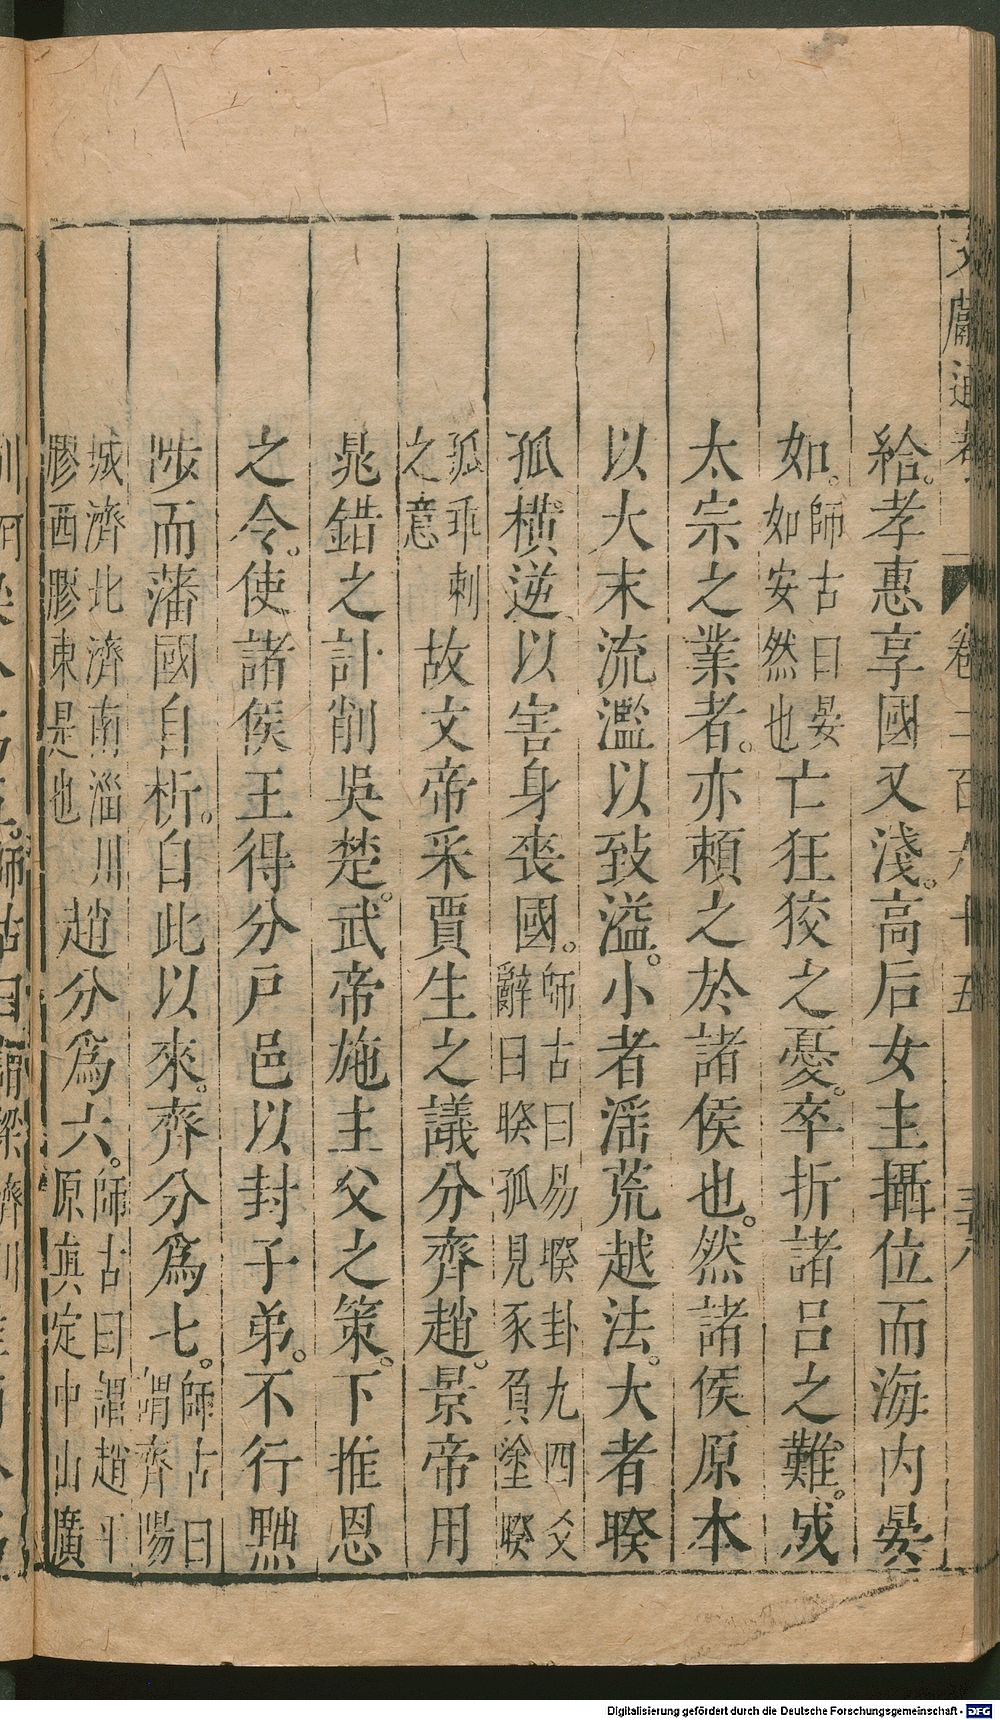 文獻通考 卷二百六十五 三六
給。孝惠享國又淺。高后女主攝位而海内晏
如。師古曰晏如安然也亡狂狡之憂。卒折諸呂之難。成
太宗之業者。亦賴之於諸侯也。然諸侯原本
以大末流濫以致溢。小者滛荒越法。大者睽
孤横逆以害身喪國。師古曰易睽卦九四爻辭曰睽孤見豕負塗睽
孤乖刺之意故文帝采賈生之議分齊趙。景帝用
鼂錯之計削吳楚。武帝施主父之策。下推恩
之令。使諸侯王得分戸邑以封子弟。不行黜
陟而藩國自析。自此以來。齊分爲七。師古曰謂齊陽
城濟北濟南淄川膠西膠東是也趙分爲六。師古曰謂趙平原真定中山廣